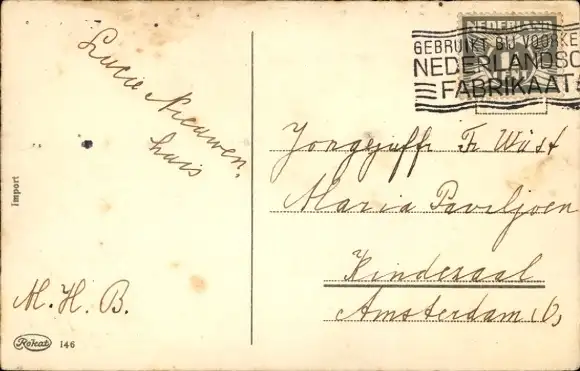 Lucie Nieuwen,
huis
M. H. B.
Import
Rokat 146
NEDERLAND
GEBRUIKT BIJ VOORKE
NEDERLANDSC
FABRIKAAT
Jongejuffr Fr Wüst
Maria Paviljoen
Kinderzaal
Amsterdam O,